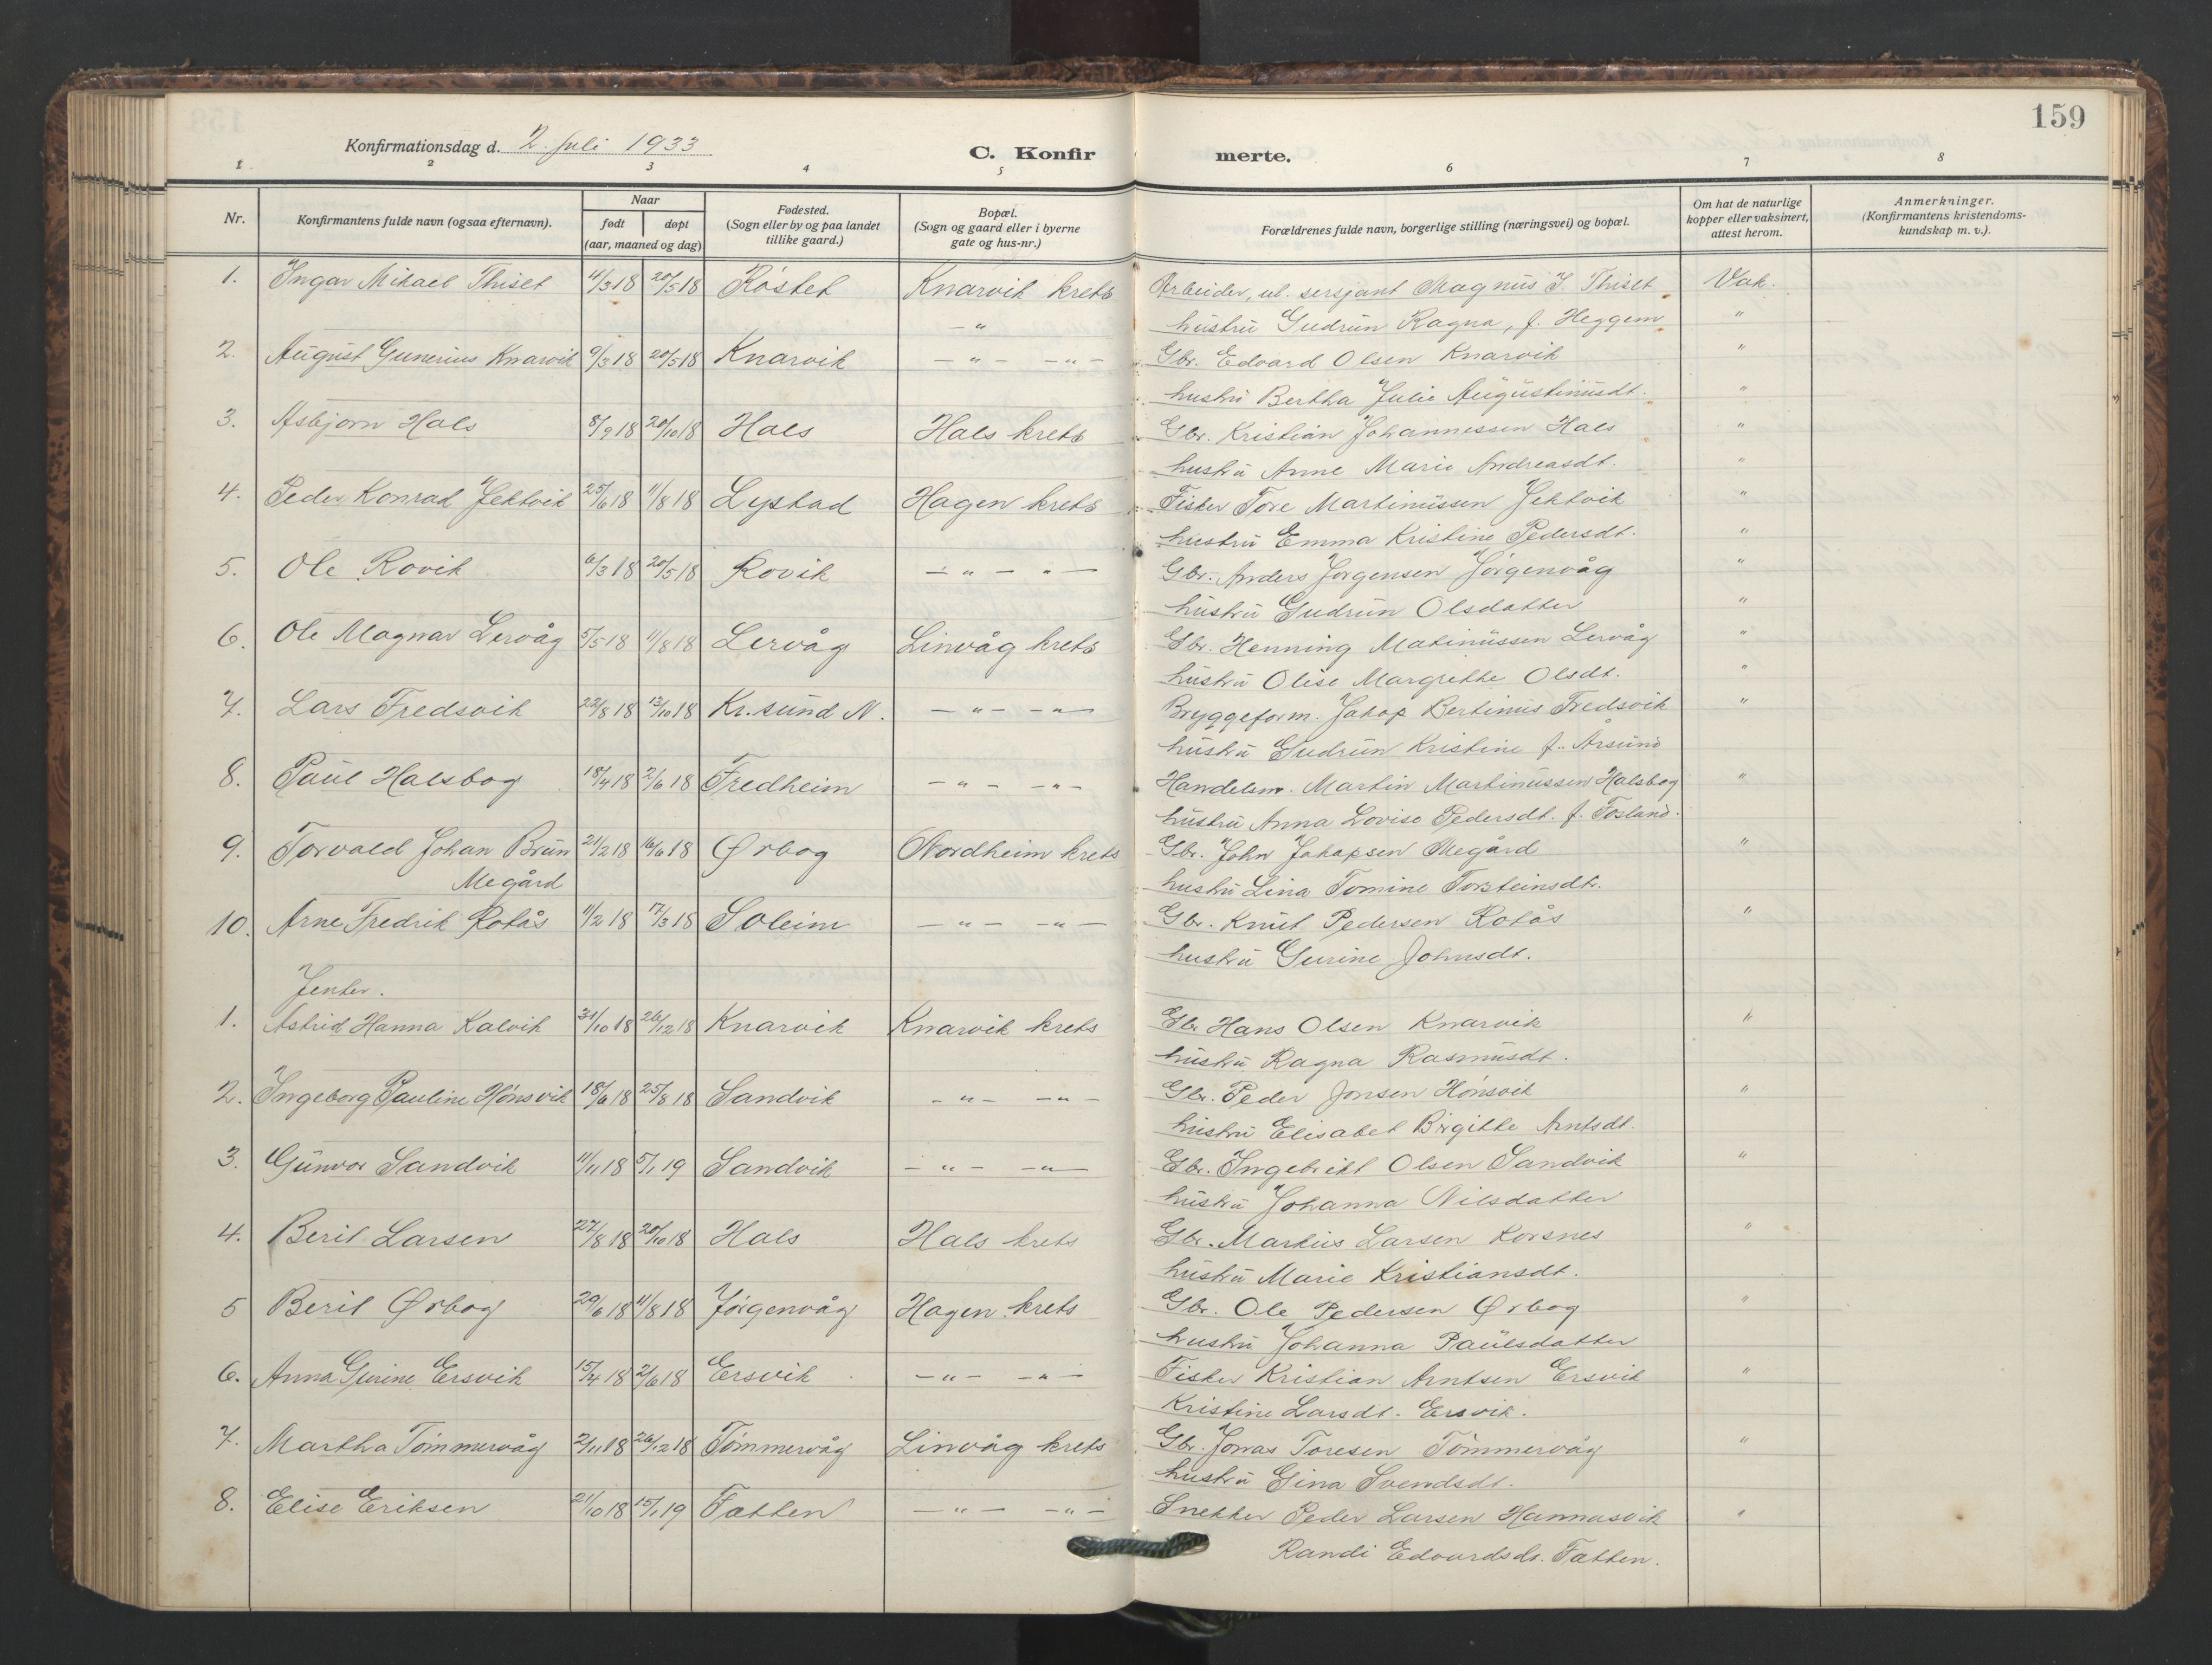 159
Konfirmationsdag d. 2. Juli 1933
C. Konfirmerte.
1 2 3 4 5 6 7 8
Nr. | Konfirmantens fulde navn (ogsaa efternavn). | Naar født | døpt (aar, maaned og dag) | Fødested. (Sogn eller by og paa landet tillike gaard.) | Bopæl. (Sogn og gaard eller i byerne gate og hus-nr.) | Forældrenes fulde navn, borgerlige stilling (næringsvei) og bopæl. | Om hat de naturlige kopper eller vaksinert, attest herom. | Anmerkninger. (Konfirmantens kristendoms-kundskap m. v.).
1. Ingar Mikael Thiset 4/3 18 20/5 18 Røstet Knarvik krets Arbeider, ul. sersjant Magnus J. Thiset Vak.
— " hustru Gudrun Ragna, f. Heggem "
2. August Gunerius Knarvik 9/3 18 20/5 18 Knarvik — " — — " — Gbr. Edvard Olsen Knarvik "
hustru Bertha Julie Augustinusdt. "
3. Asbjørn Hals 8/9 18 20/10 18 Hals Hals krets Gbr. Kristian Johannessen Hals "
hustru Anne Marie Andreasdt. "
4. Peder Konrad Jektvik 25/6 18 11/8 18 Lystad Hagen krets Fisker Tore Martinussen Jektvik "
hustru Emma Kristine Pedersdt. "
5. Ole Rovik 6/3 18 20/5 18 Rovik — " — " — Gbr. Anders Jørgensen Jørgenvåg "
hustru Gudrun Olsdatter "
6. Ole Magnar Lervåg 5/5 18 11/8 18 Lervåg Linvåg krets Gbr. Henning Matinussen Lervåg "
hustru Olise Margrethe Olsdt. "
7. Lars Fredsvik 22/8 18 13/10 18 Kr.sund N. — " — — " — Bryggeform. Jakop Bertinus Fredsvik "
hustru Gudrun Kristine f. Årsund
8. Paul Halsbog 18/4 18 2/6 18 Fredheim — " — — " — Handelsm. Martin Martinussen Halsbog "
hustru Anna Lovise Pedersdt. f. Fosland.
9. Torvald Johan Brun 21/2 18 16/6 18 Ørbog Nordheim krets Gbr. John Jakapsen Megård "
Megård hustru Lina Tomine Torsteinsdtr.
10. Arne Fredrik Rotås 11/2 18 17/3 18 Soleim — " — — " — Gbr. Knut Pedersen Rotås "
hustru Gurine Johnsdt.
Jenter.
1. Astrid Hanna Kalvik 31/10 18 26/12 18 Knarvik Knarvik krets Gbr Hans Olsen Knarvik "
hustru Ragna Rasmusdt.
2. Ingeborg Pauline Hønsvik 18/6 18 25/8 18 Sandvik — " — — " — Gbr. Peder Jonsen Hønsvik "
hustru Elisabet Birgitte Arntsdt.
3. Gunvor Sandvik 11/11 18 5/1 19 Sandvik — " — — " — Gbr. Ingebrikt Olsen Sandvik "
hustru Johanna Nilsdatter
4. Berit Larsen 27/8 18 20/10 18 Hals Hals krets Gbr. Markus Larsen Korsnes "
hustru Marie Kristiansdt.
5 Berit Ørbog 29/6 18 11/8 18 Jørgenvåg Hagen krets Gbr. Ole Pedersen Ørbog "
hustru Johanna Paulsdatter
6. Anna Gurine Ersvik 15/4 18 2/6 18 Ersvik — " — — " — Fisker Kristian Arntsen Ersvik "
Kristine Larsdt. Ersvik.
7. Martha Tømmervåg 2/11 18 26/12 18 Tømmervåg Linvåg krets Gbr. Jonas Toresen Tømmervåg "
hustru Gina Svendsdt.
8. Elise Eriksen 21/10 18 15/1 19 Tatten — " — — " — Snekker Peder Larsen Hannasvik "
Randi Edvardsdr. Tatten.